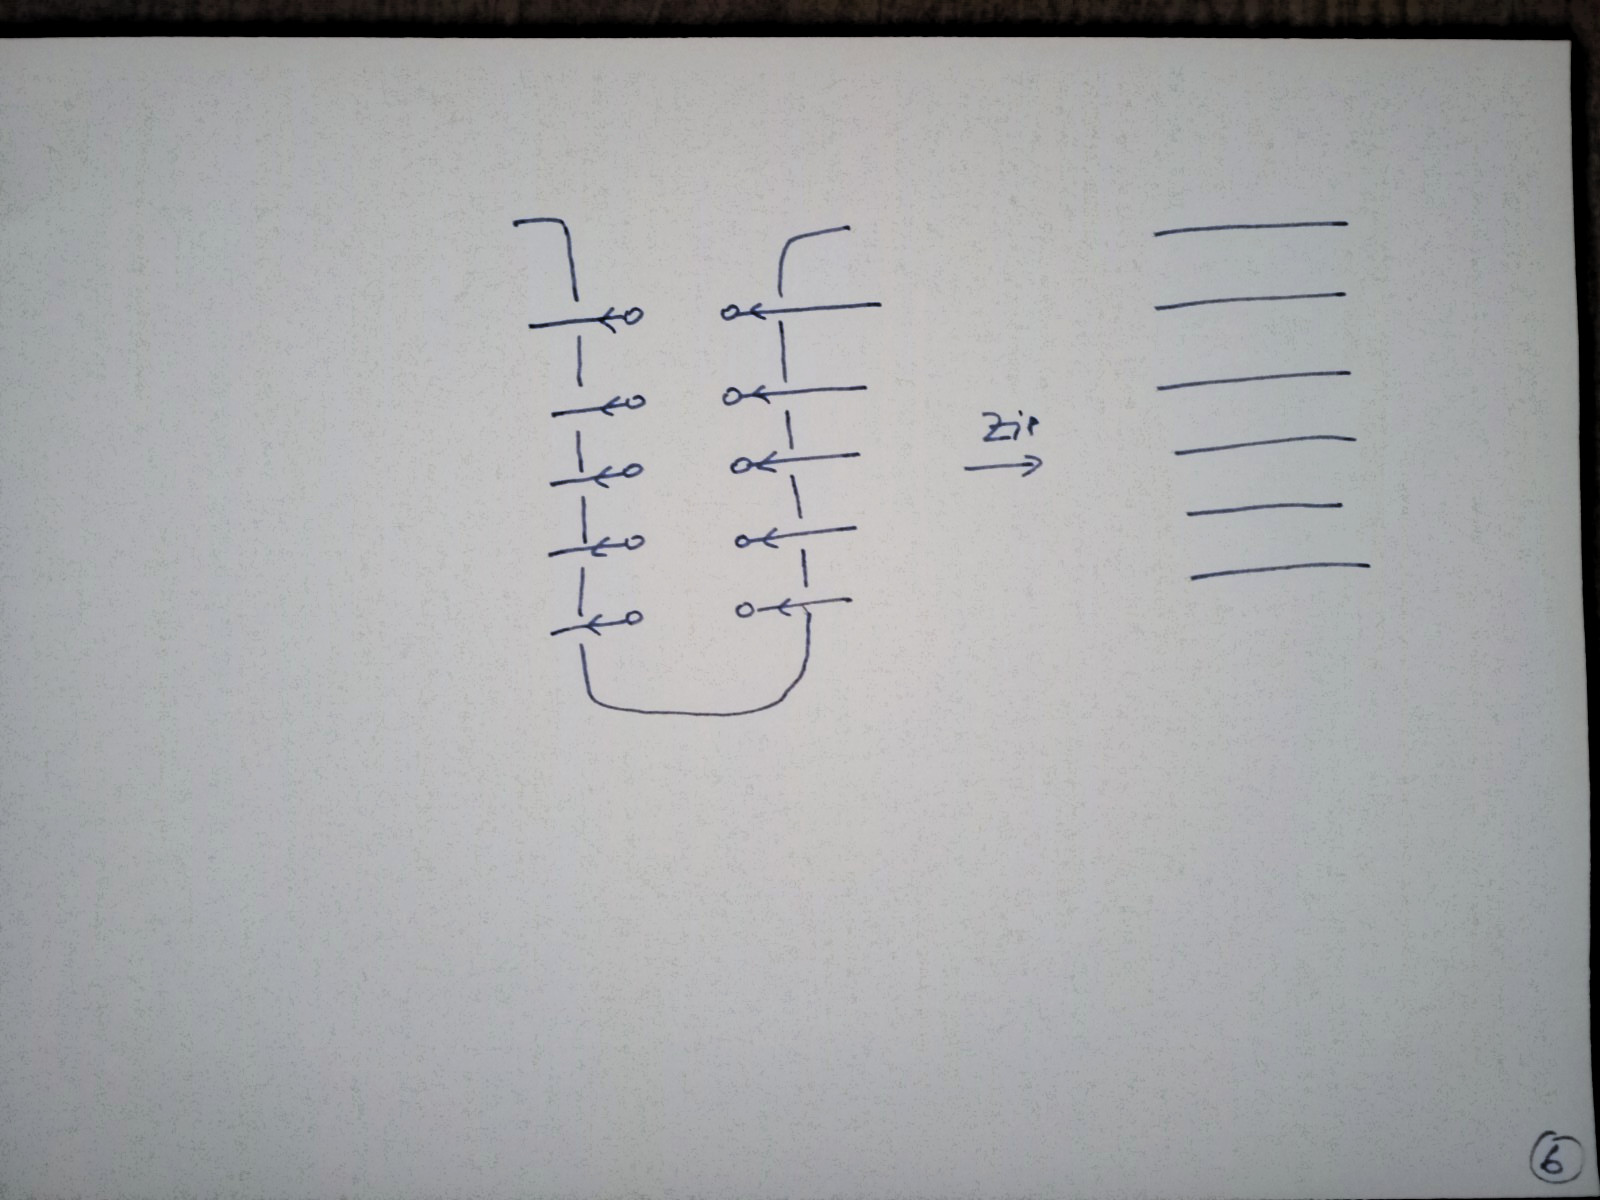 Zip
6